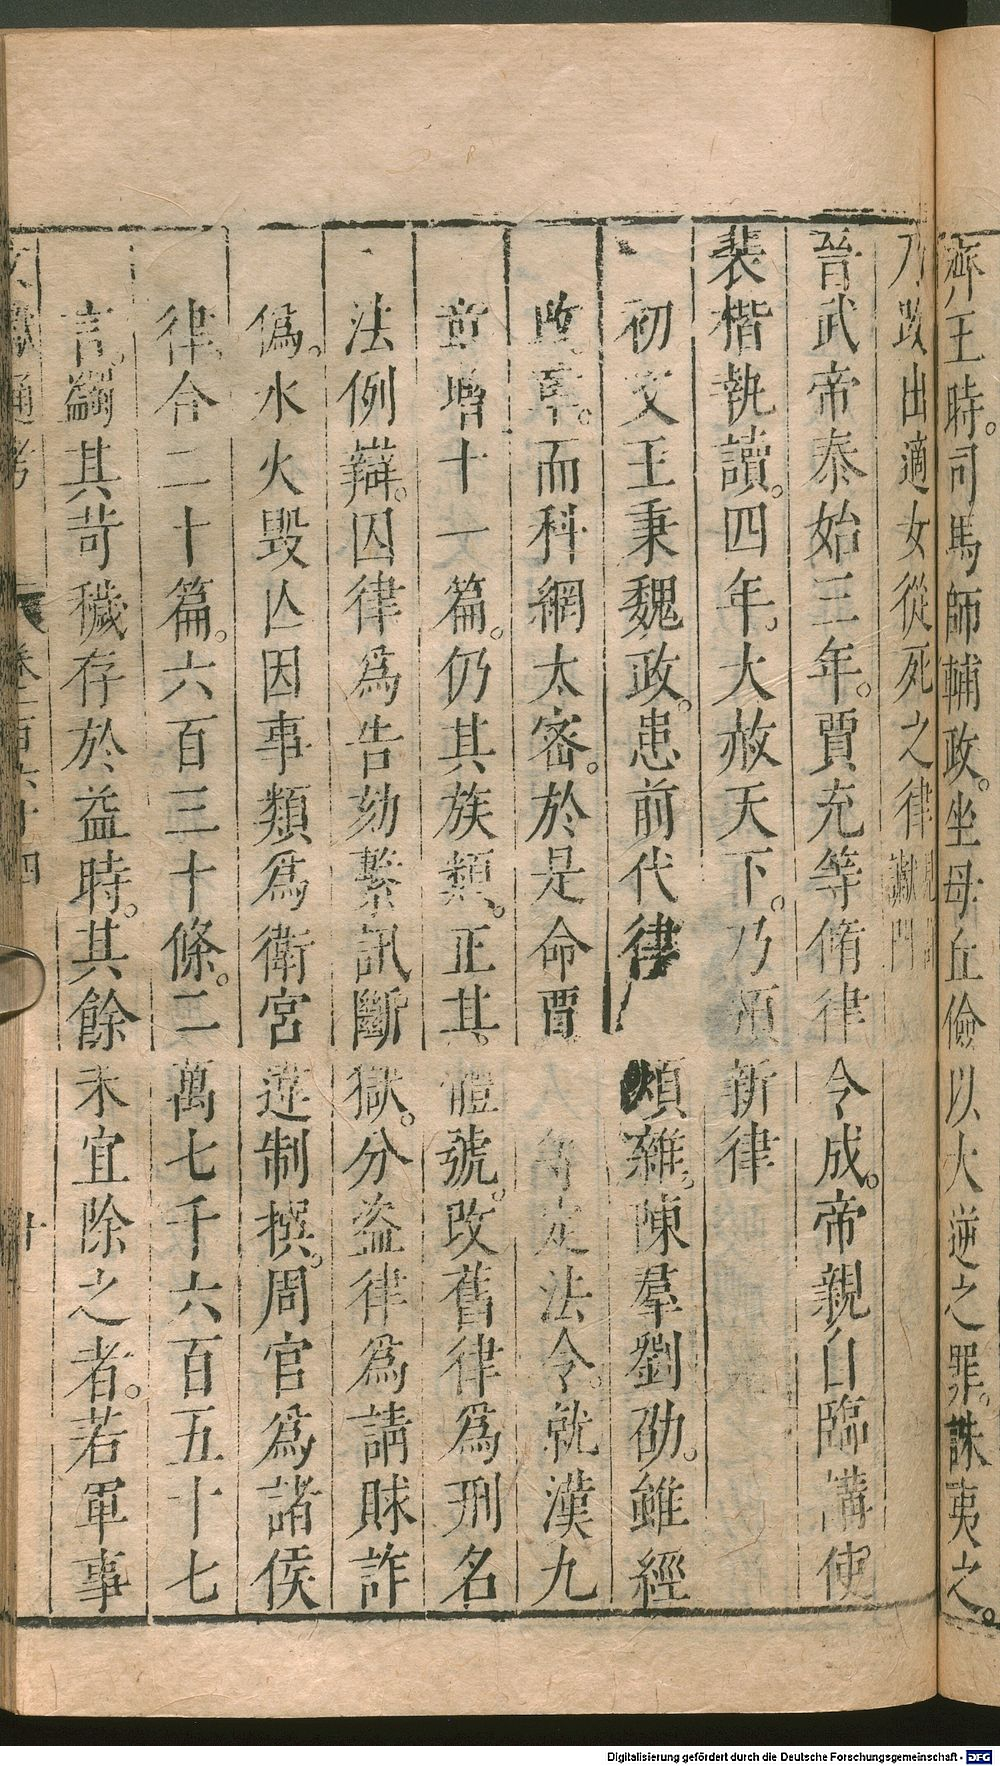 齊王時。司馬師輔政。坐母丘儉以大逆之罪。誅夷之。
乃改出適女從死之律
讞門
晉武帝泰始三年。賈充等脩律令成。帝親自臨講使
裴楷執讀。四年。大赦天下。乃頒新律
初文王秉魏政。患前代律煩雜。陳羣劉劭。雖經
改革。而科網太密。於是命賈定法令。就漢九
章增十一篇。仍其族類。正其體號。改舊律爲刑名
法例。辯囚律爲告劾繫訊斷獄。分盜律爲請賕詐
僞。水火毀亾因事類爲衛宮違制撰。周官爲諸侯
律。合二十篇。六百三十條。二萬七千六百五十七
言。蠲其苛穢存於益時。其餘未宜除之者。若軍事
文獻通考
卷一百六十四
十
Digitalisierung gefördert durch die Deutsche Forschungsgemeinschaft - DFG